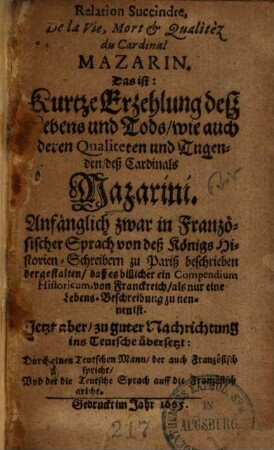 Relation Succindte,
De la Vie, Mort & Qualitèz
du Cardinal
MAZARIN.
Das ist:
Kurtze Erzehlung deß
Lebens und Tods/wie auch
deren Qualiteten und Tugen-
den/deß Cardinals
Mazarini.
Anfänglich zwar in Franzö-
sischer Sprach von deß Königs Hi-
storien-Schreibern zu Pariß beschrieben
dergestalten/ daß es billicher ein Compendium
Historicum, von Franckreich/als nur eine
Lebens-Beschreibung zu nen-
nen ist.
Jetzt aber/zu guter Nachrichtung
ins Teutsche übersetzt:
Durch einen Teutschen Mann/ der auch Französisch
spricht/
Und der die Teutsche Sprach auff die Französisch
richt.
Gedruckt im Jahr 1665.
217
IN
AUGSBURG.